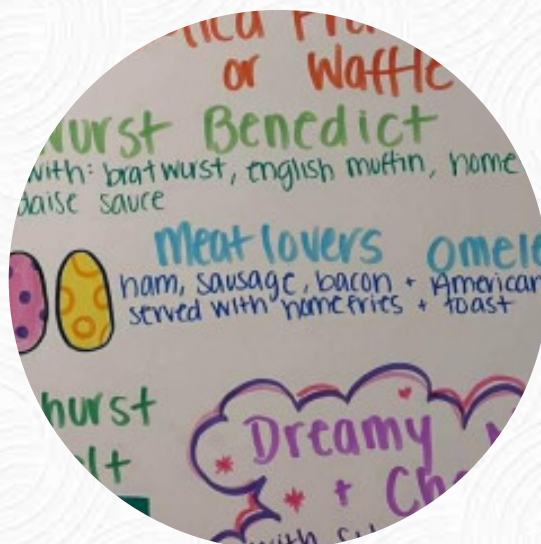 or Waffle
Benedict
with: bratwurst, english muffin, home
sauce
Meat lovers
ham, sausage, bacon + American
served with homefries + toast
hurst
lt
Dreamy
+
with